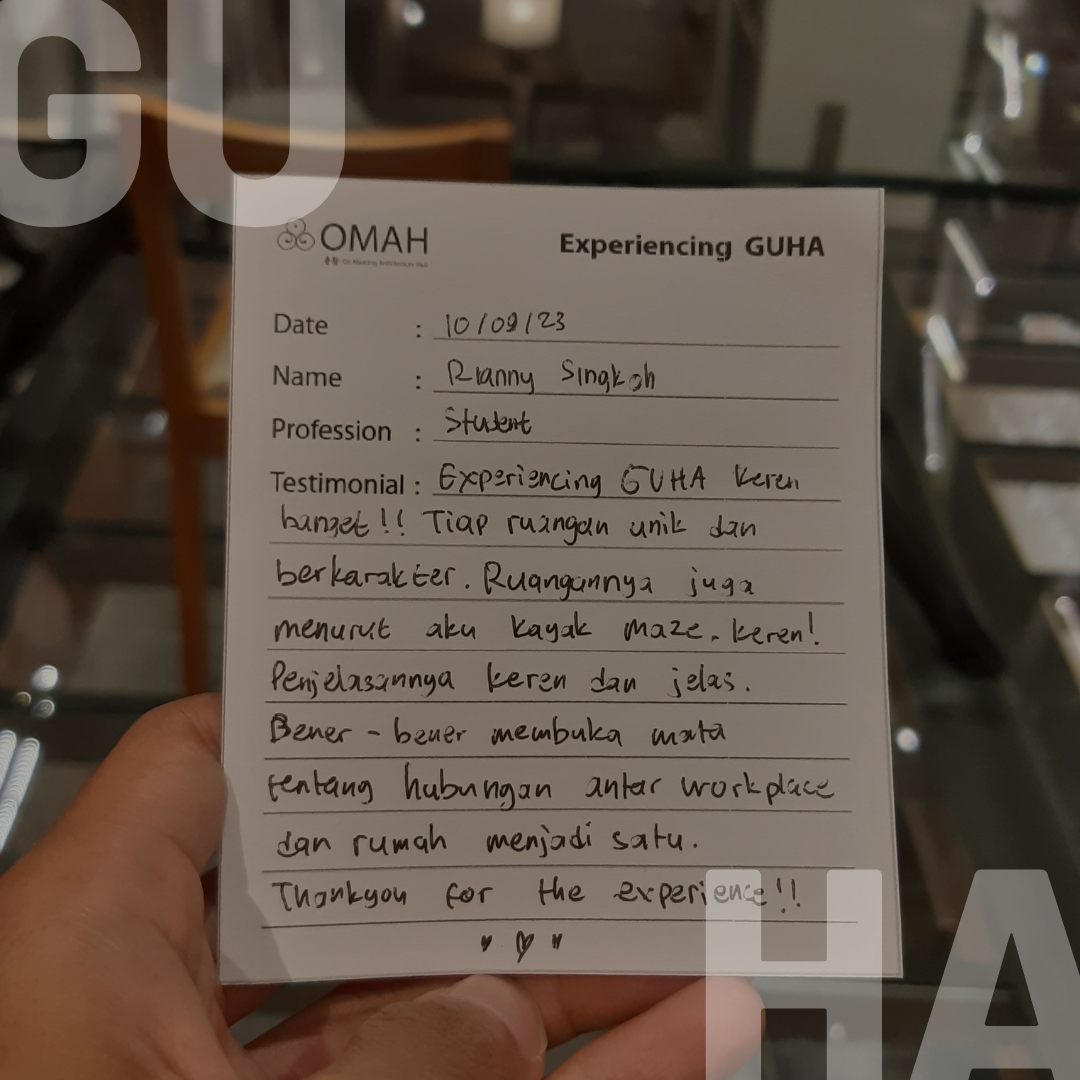 GU
OMAH
Experiencing GUHA
Date : 10/09/23
Name : Rianny Singkoh
Profession : Student
Testimonial : Experiencing GUHA keren
banget!! Tiap ruangan unik dan
berkarakter. Ruangannya juga
menurut aku kayak maze. keren!
Penjelasannya keren dan jelas.
Bener - bener membuka mata
tentang hubungan antar workplace
dan rumah menjadi satu.
Thankyou for the experience!!
HA